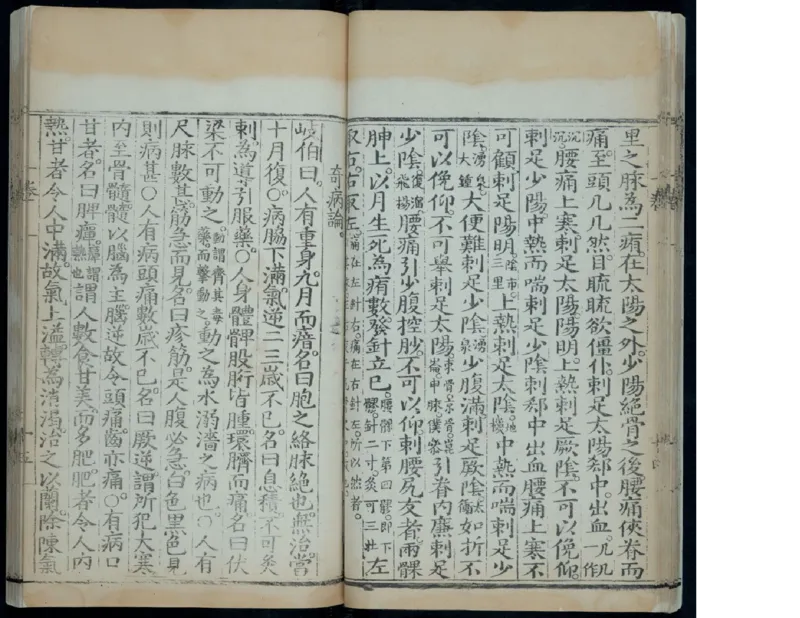 里之脉為二痏在太陽之外少陽絕骨之後腰痛俠脊而
痛至頭几几然目䀮䀮欲僵仆刺足太陽郄中出血几几一作
沉沉腰痛上寒刺足太陽陽明上熱刺足厥陰不可以俛仰
刺足少陽中熱而喘刺足少陰刺郄中出血腰痛上寒不
可顧刺足陽明陰市三里上熱刺足太陰地機中熱而喘刺足少
陰湧泉大鍾大便難刺足少陰湧泉少腹滿刺足厥陰太衝如折不
可以俛仰不可舉刺足太陽引脊內廉刺足
少陰復溜飛揚腰痛引少腹控䏚不可以仰刺腰尻交者兩髁
胂上以月生死為痏數發針立已左
取右右取左
奇病論
岐伯曰人有重身九月而瘖名曰胞之絡脉絕也無治當
十月復○病脇下滿氣逆二三歲不已名曰息積不可灸
刺為導引服藥○人身體髀股䯒皆腫環臍而痛名曰伏
梁不可動之動謂齊其毒藥而擊動之動之為水溺濇之病也○人有
尺脉數甚筋急而見名曰疹筋是人腹必急白色黑色見
則病甚○人有病頭痛數歲不已名曰厥逆謂所犯大寒
內至骨髓髓以腦為主腦逆故令頭痛齒亦痛○有病口
甘者名曰脾癉癉謂熱也謂人數食甘美而多肥肥者令人內
熱甘者令人中滿故氣上溢轉為消渴治之以蘭除陳氣